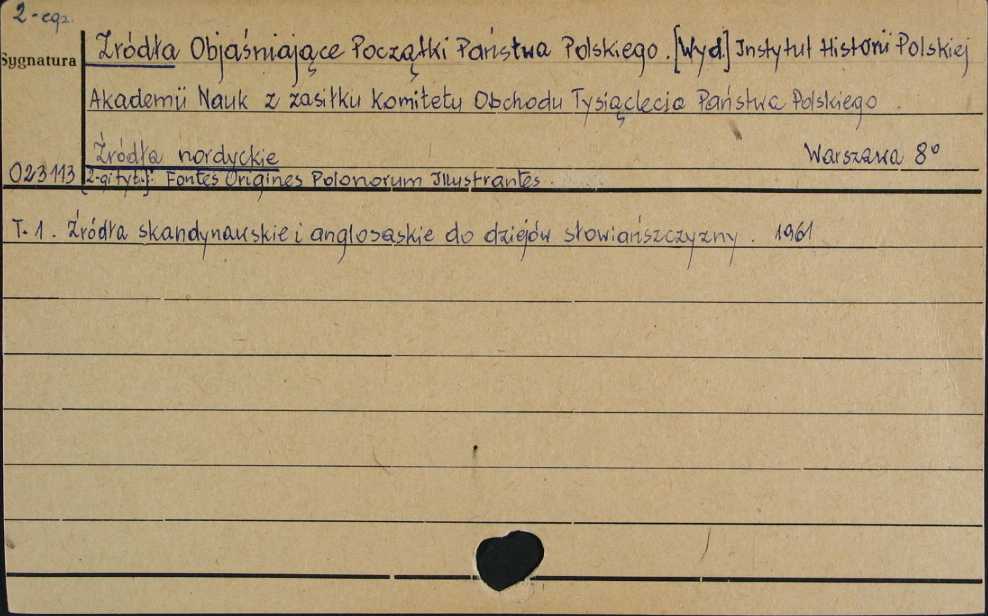 2-egz.
Źródła Objaśniające Początki Państwa Polskiego. [Wyd.] Instytut Historii Polskiej
Sygnatura
Akademii Nauk z zasiłku Komitetu Obchodu Tysiąclecia Państwa Polskiego.
Źródła nordyckie Warszawa 8°
023113 [2-gi tyt.]: Fontes Origines Polonorum Illustrantes.
T. 1. Źródła skandynawskie i anglosaskie do dziejów słowiańszczyzny. 1961